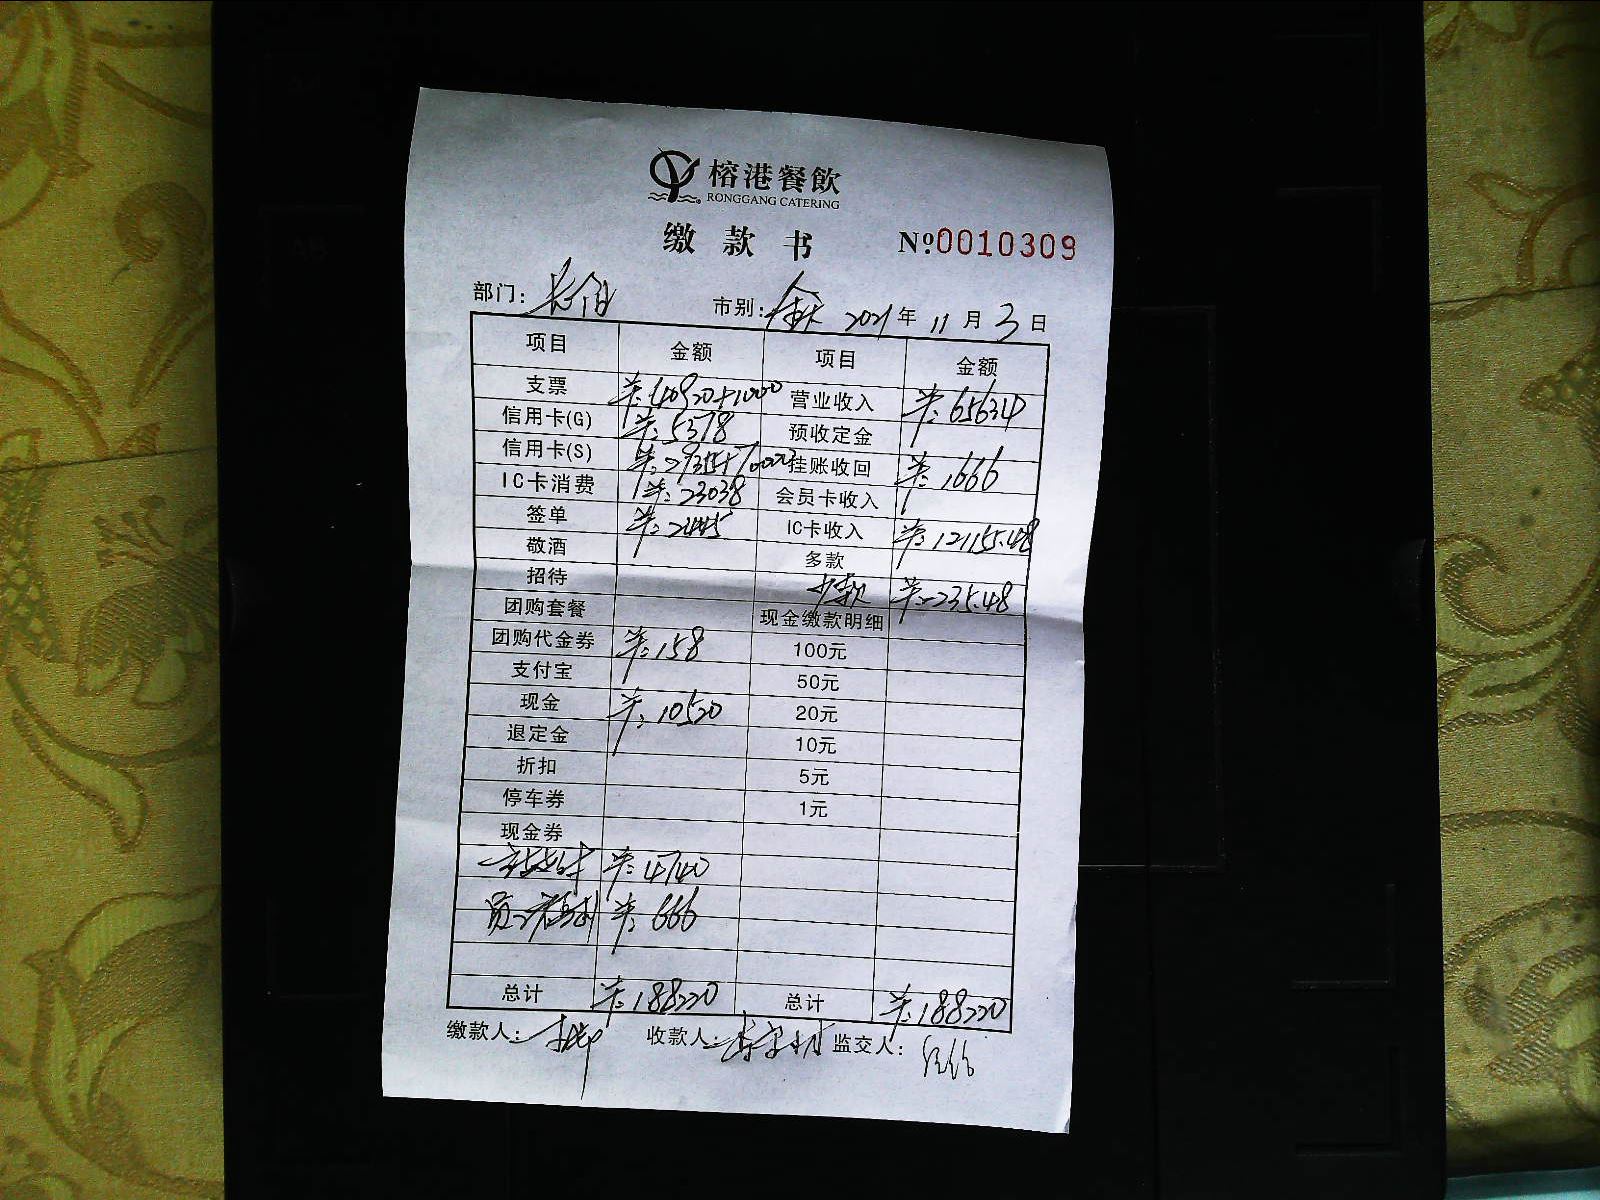 榕港餐飲
RONGGANG CATERING
缴款书 №0010309
部门: 市别: 2021年11月3日
项目 金额 项目 金额
支票 半: 40920+10000 营业收入 半: 65634
信用卡(G) 半: 5378 预收定金
信用卡(S) 挂账收回 半: 1666
IC卡消费 半: 23038 会员卡收入
签单 半: 2445 IC卡收入 半: 121155.48
敬酒 多款
招待 少款 半: -235.48
团购套餐 现金缴款明细
团购代金券 半: 158 100元
支付宝 50元
现金 半: 10520 20元
退定金 10元
折扣 5元
停车券 1元
现金券
半: 4740
半: 666
总计 半: 188220 总计 半: 188220
缴款人: 收款人: 监交人: